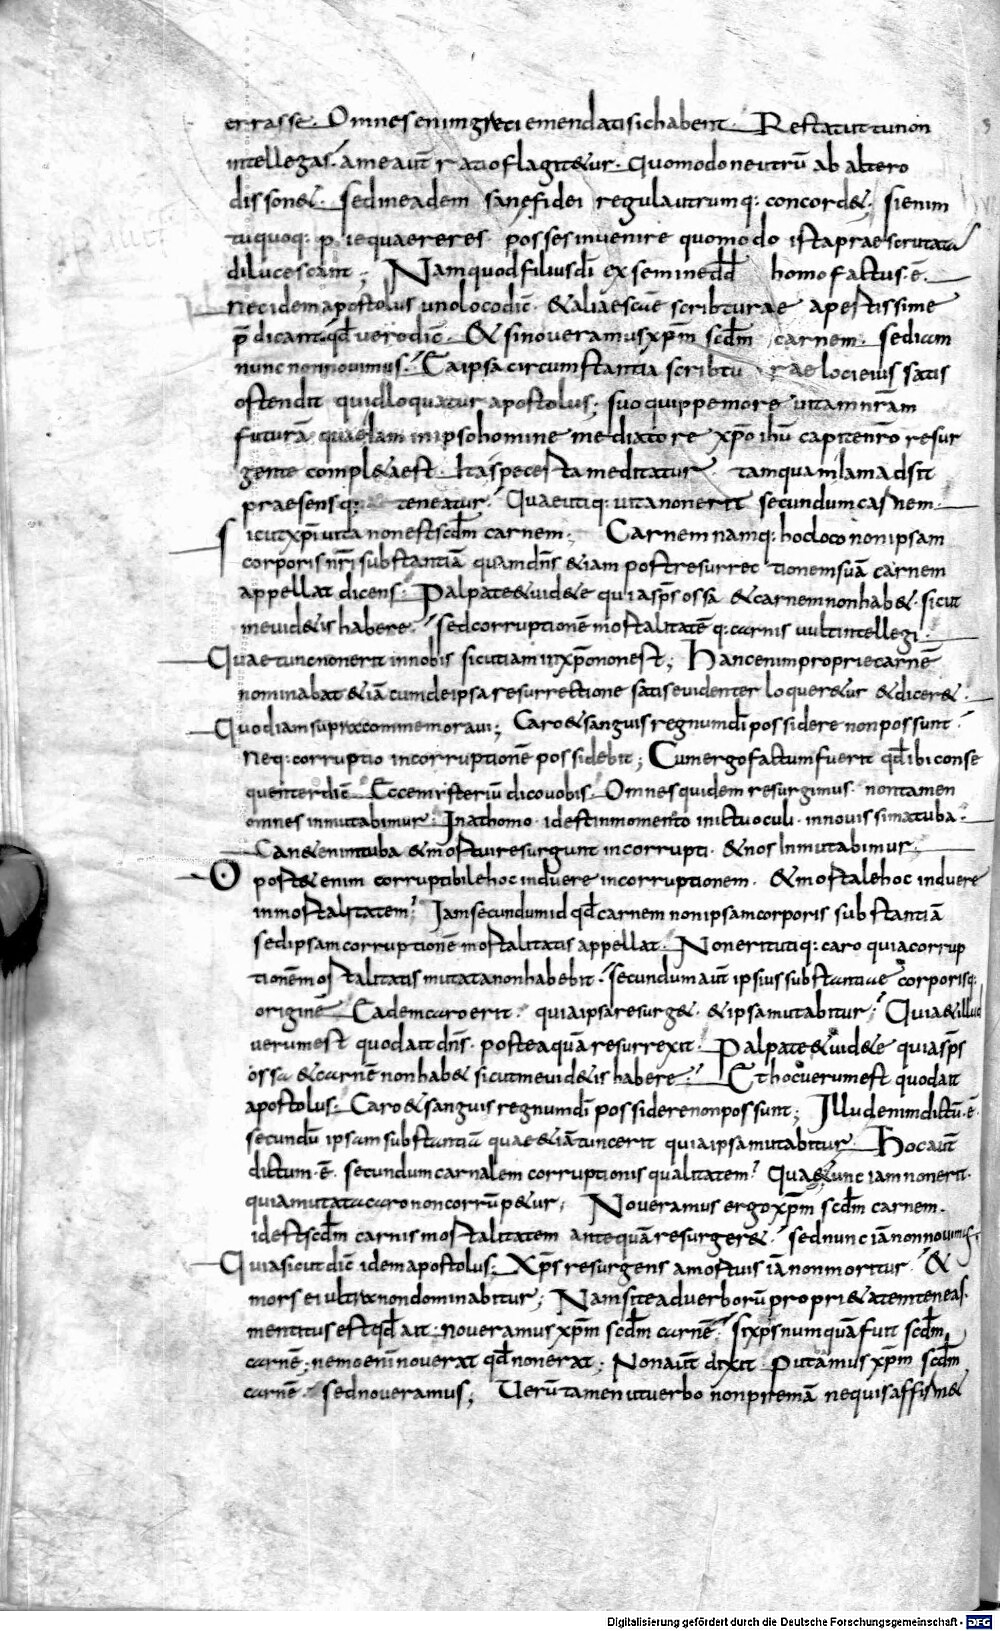 errasse. Omnes enim greci emendati sic habent. Restat ut tu non
intellegas. a me aut̄ ratio flagit&ur. Quomodo neutrū ab altero
disson&. sed in eadem sanę fidei regula utrumq: concord&. si enim
tu quoq: pie quaereres. posses invenire quomodo ista praescrutata
dilucescant; Nam quod filius dī ex semine dd̄ homo factus .ē.
nec idem apostolus uno loco dic̄. & aliae scē scribturae apertissime
p̄dicant. qđ vero dic̄. Et si noveramus xp̄m scđm carnem. sed iam
nunc non novimus. Ea ipsa circumstantia scribturae loci eius satis
ostendit quid loquatur apostolus; suo quippe more vitam nr̄am
futurā. quae iam in ipso homine mediatore xp̄o ihū capite nr̄o resur
gente compl&a est. Ita spe certa meditatur. tamquam iam adsit
praesensq: teneatur. Quae utiq: vita non erit secundum carnem.
sicut xp̄i vita non est scđm carnem; Carnem namq: hoc loco non ipsam
corporis nr̄i substantiā quam dn̄s &iam post resurrectionem suā carnem
appellat dicens. Palpate & vid&e quia sp̄s ossa & carnem non hab&. sicut
me vid&is habere. sed corruptionē mortalitatēq: carnis vult intellegi.
Quae tunc non erit in nobis sicut iam in xp̄o non est; Hanc enim proprie carnē
nominabat &iā cum de ipsa resurrectione satis evidenter loquer&ur & dicer&.
Quod iam supra commemoravi; Caro & sanguis regnum dī possidere non possunt.
Neq: corruptio incorruptionē possidebit; Cum ergo factum fuerit qđ ibi conse
quenter dic̄. Ecce misteriū dico vobis. Omnes quidem resurgimus. non tamen
omnes inmutabimur. In athomo. id est in momento in ictu oculi. in novissima tuba.
Can& enim tuba & mortui resurgunt incorrupti. & nos inmutabimur;
Oport& enim corruptibile hoc induere incorruptionem. & mortale hoc induere
inmortalitatem. Iam secundum id qđ carnem non ipsam corporis substantiā
sed ipsam corruptionē mortalitatis appellat. Non erit utiq: caro quia corrup
tionē mortalitatis mutata non habebit. secundum aut̄ ipsius substantiae corporisq:
originē. Eadem caro erit. quia ipsa resurg&. & ipsa mutabitur. Quia & illud
verum est quod ait dn̄s. postea quā resurrexit. Palpate & vid&e quia sp̄s
ossa & carnē non hab& sicut me vid&is habere. Et hoc verum est quod ait
apostolus. Caro & sanguis regnum dī possidere non possunt; Illud enim dictū .ē.
secundū ipsam substantiā quae &iā tunc erit quia ipsa mutabitur. Hoc aut̄
dictum .ē. secundum carnalem corruptionis qualitatem. Quae tunc iam non erit.
quia mutata caro non corrūp&ur; Noveramus ergo xp̄m scđm carnem.
id est scđm carnis mortalitatem antequā resurger&. sed nunc iā non novimus;
Quia sicut dic̄ idem apostolus. Xp̄s resurgens a mortuis iā non moritur. &
mors ei ultra non dominabitur; Nam si te ad verborū propri&atem teneas.
mentitus est qđ ait. noveramus xp̄m scđm carnē. si xp̄s numquā fuit scđm
carnē; nemo enī noverat qđ non erat; Non aut̄ dixit. Putamus xp̄m scđm
carnē. sed noveramus; Verūtamen ut verbo non premā ne quis affirm&
Digitalisierung gefördert durch die Deutsche Forschungsgemeinschaft - DFG